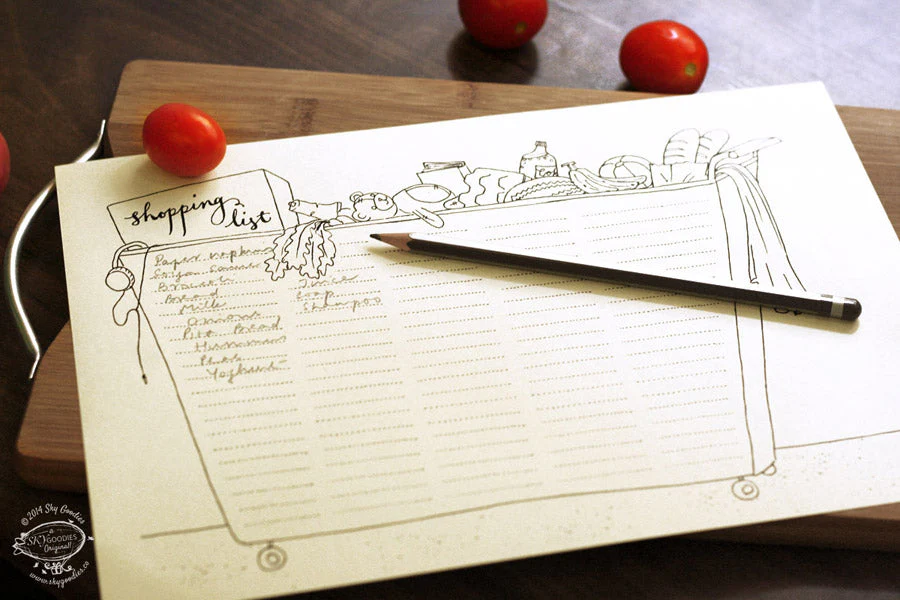 shopping list
Paper napkins
Bread
Milk
Onions
Pita Bread
Hummus
Yoghurt
Juice
Soap
Shampoo
© 2014 Sky Goodies
a
SKYGOODIES
Original!
www.skygoodies.co